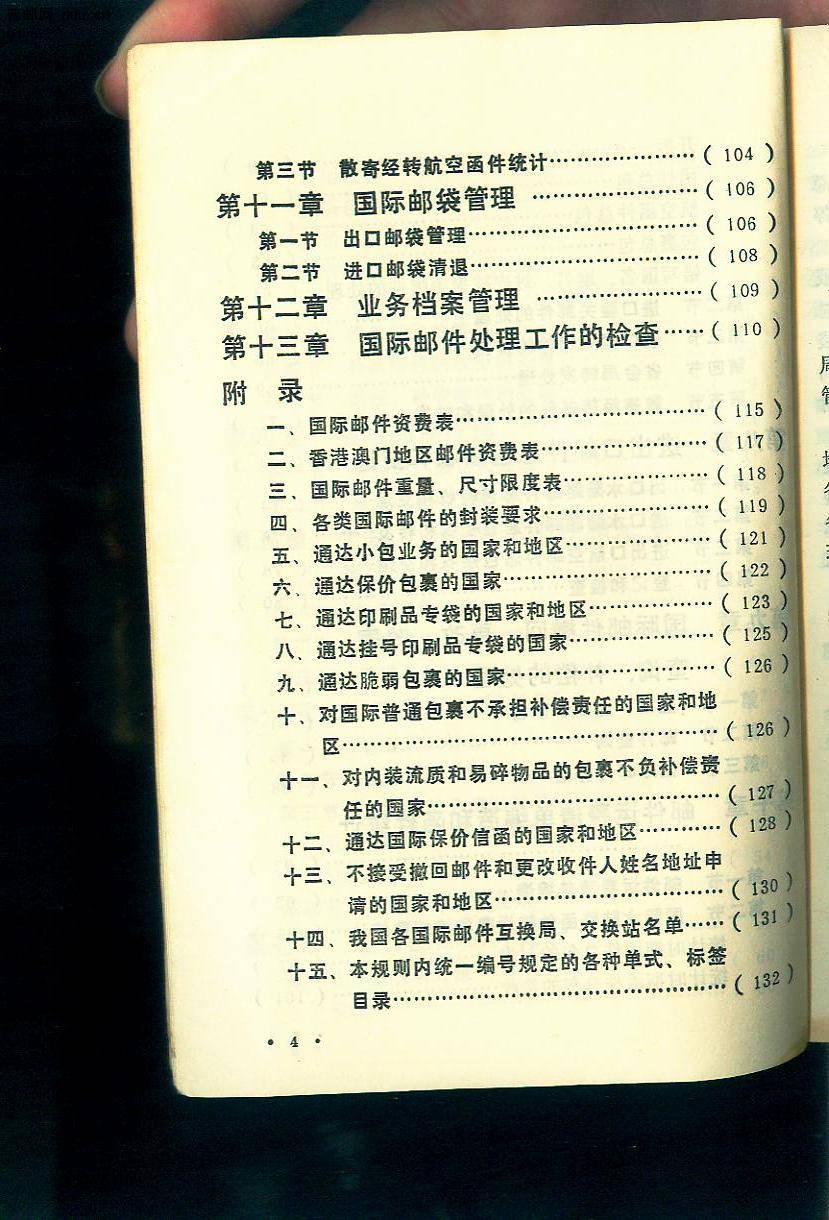 第三节 散寄经转航空函件统计………………( 104 )
第十一章 国际邮袋管理 …………………( 106 )
第一节 出口邮袋管理…………………………( 106 )
第二节 进口邮袋清退…………………………( 108 )
第十二章 业务档案管理 …………………( 109 )
第十三章 国际邮件处理工作的检查……( 110 )
附 录
一、国际邮件资费表……………………………( 115 )
二、香港澳门地区邮件资费表…………………( 117 )
三、国际邮件重量、尺寸限度表………………( 118 )
四、各类国际邮件的封装要求…………………( 119 )
五、通达小包业务的国家和地区………………( 121 )
六、通达保价包裹的国家………………………( 122 )
七、通达印刷品专袋的国家和地区……………( 123 )
八、通达挂号印刷品专袋的国家………………( 125 )
九、通达脆弱包裹的国家………………………( 126 )
十、对国际普通包裹不承担补偿责任的国家和地
区…………………………………………( 126 )
十一、对内装流质和易碎物品的包裹不负补偿责
任的国家…………………………………( 127 )
十二、通达国际保价信函的国家和地区…………( 128 )
十三、不接受撤回邮件和更改收件人姓名地址申
请的国家和地区…………………………( 130 )
十四、我国各国际邮件互换局、交换站名单……( 131 )
十五、本规则内统一编号规定的各种单式、标签
目录………………………………………( 132 )
• 4 •